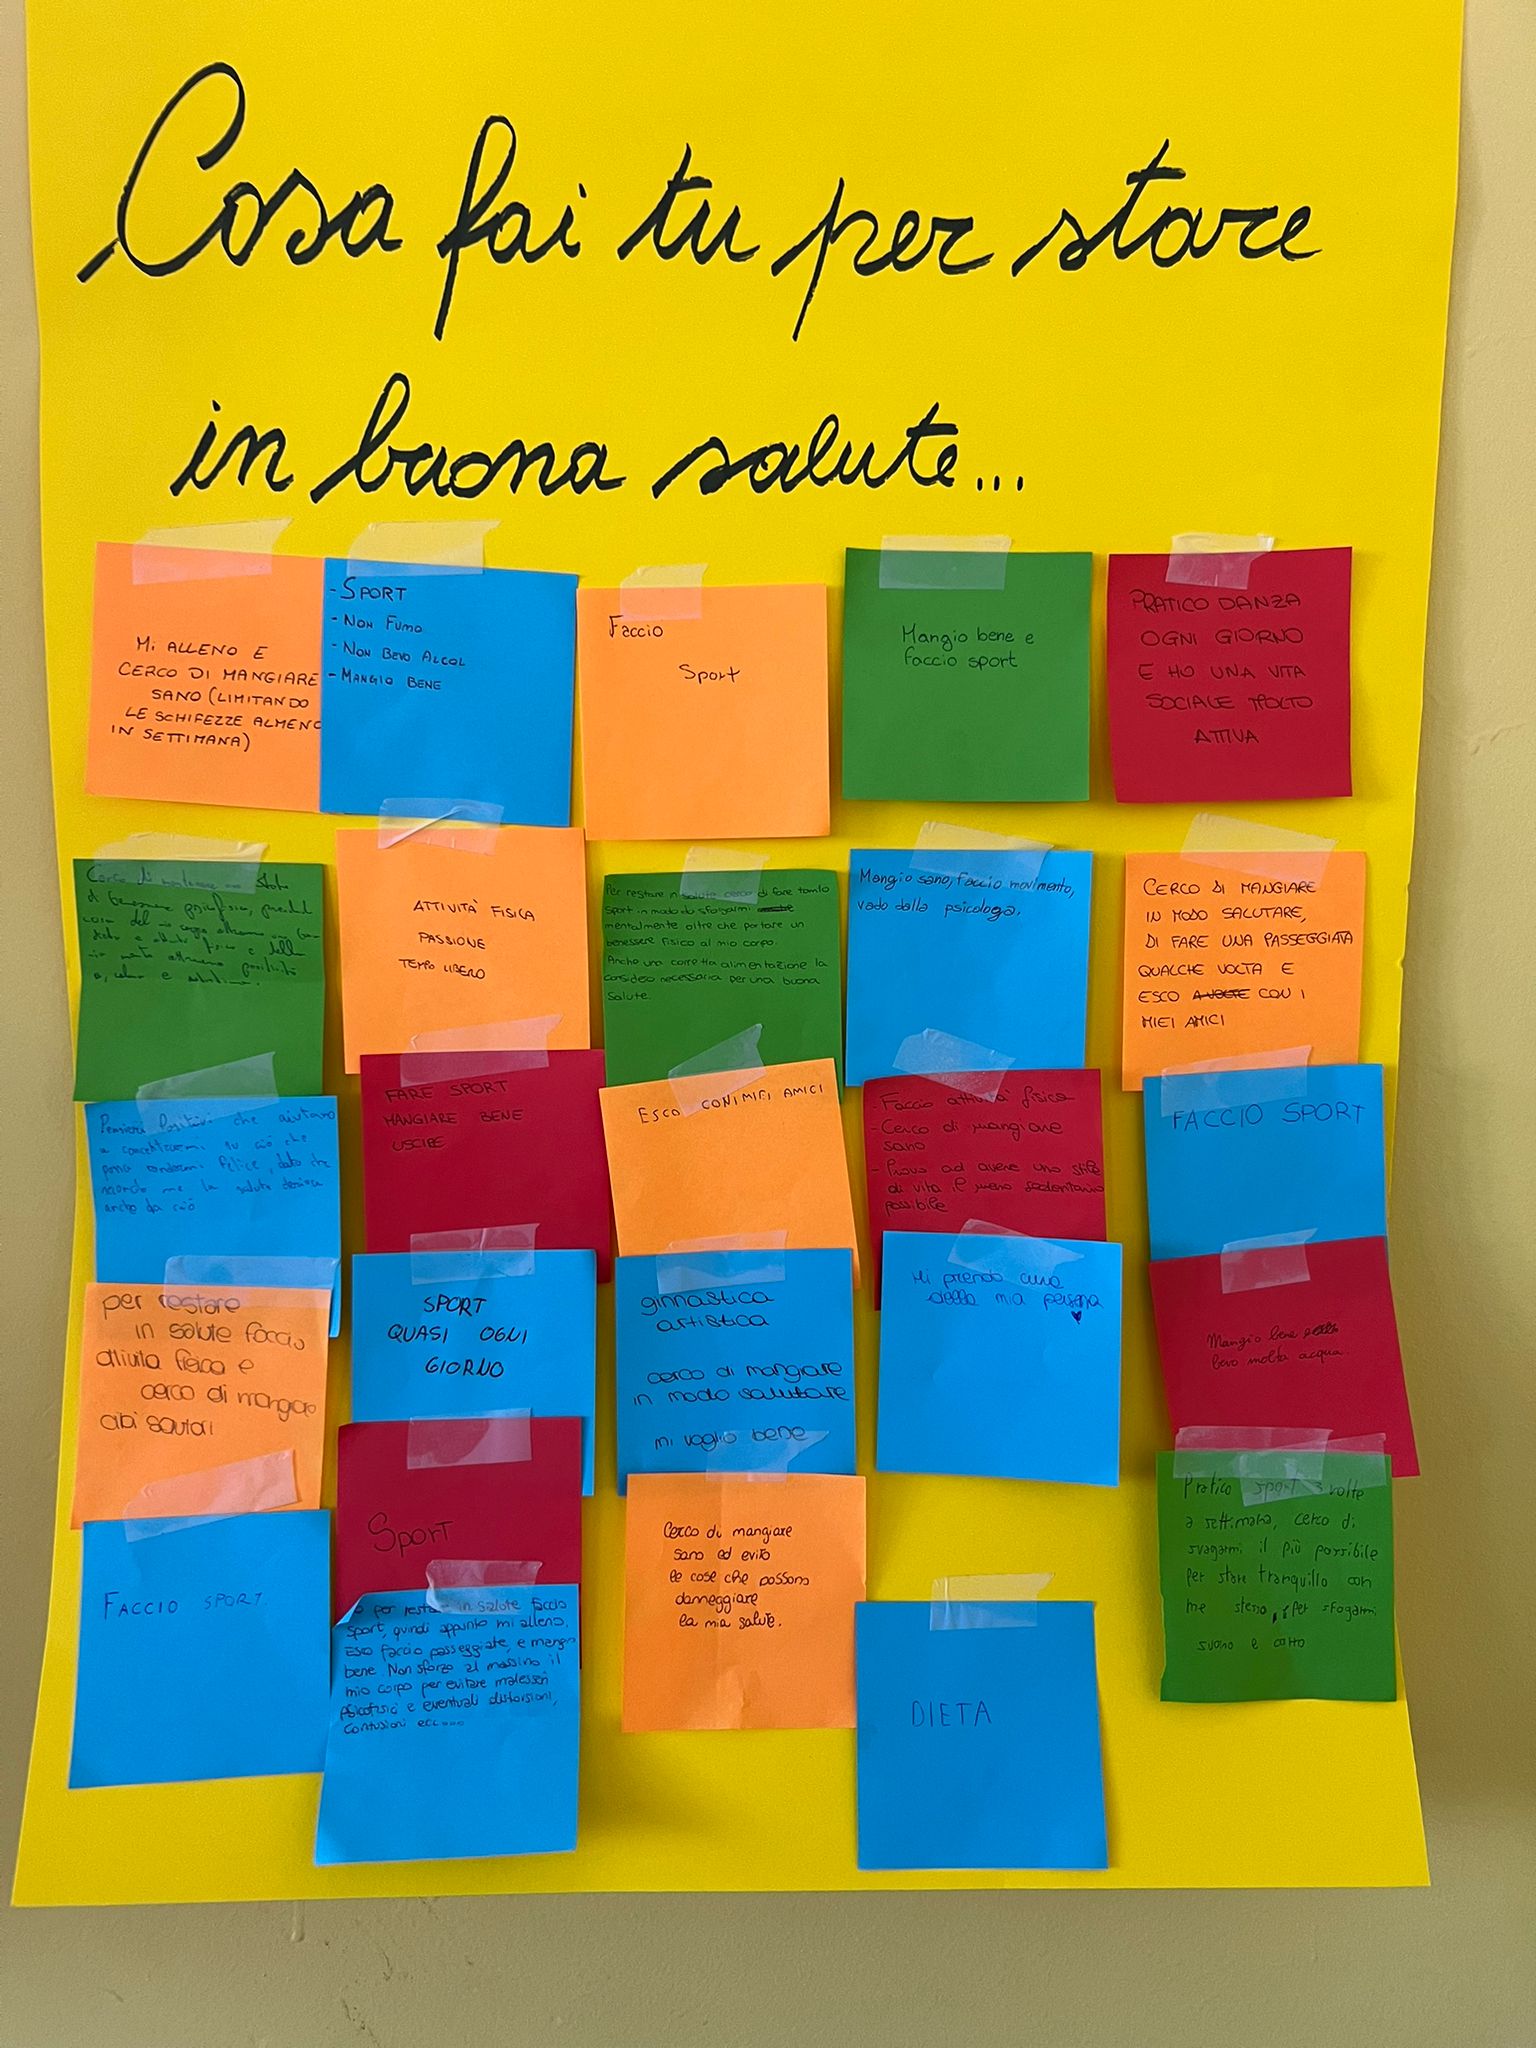 Cosa fai tu per stare
in buona salute...
Mi ALLENO E
CERCO DI MANGIARE
SANO (LIMITANDO
LE SCHIFEZZE ALMENO
IN SETTIMANA)
- SPORT
- NON FUMO
- NON BEVO ALCOL
- MANGIO BENE
Faccio
Sport
Mangio bene e
faccio sport
PRATICO DANZA
OGNI GIORNO
E HO UNA VITA
SOCIALE MOLTO
ATTIVA
Cerco di
di benessere psicofisico,
cura del mio corpo
e attività fisica e della
mia mente attraverso positività
ATTIVITÀ FISICA
PASSIONE
TEMPO LIBERO
Per restare in salute cerco di fare tanto
sport in modo da sfogarmi
mentalmente oltre che portare un
benessere fisico al mio corpo.
Anche una corretta alimentazione la
considero necessaria per una buona
salute.
Mangio sano, faccio movimento,
vado dalla psicologa.
CERCO DI MANGIARE
IN MODO SALUTARE,
DI FARE UNA PASSEGGIATA
QUALCHE VOLTA E
ESCO A VOLTE CON I
MIEI AMICI
Pensieri Positivi che aiutano
a concentrarmi su ciò che
possa rendermi felice, dato che
secondo me la salute deriva
anche da ciò
FARE SPORT
MANGIARE BENE
USCIRE
ESCO CON I MIEI AMICI
- Faccio attività fisica
- Cerco di mangiare
sano
- Provo ad avere uno stile
di vita il meno sedentario
possibile
FACCIO SPORT
per restare
in salute faccio
attivita fisica e
cerco di mangiare
cibi salutari
SPORT
QUASI OGNI
GIORNO
ginnastica
artistica
cerco di mangiare
in modo salutare
mi voglio bene
Mi prendo cura
della mia persona
Mangio bene
bevo molta acqua.
FACCIO SPORT.
Sport
per restare in salute faccio
sport, quindi appunto mi alleno.
Esco faccio passeggiate, e mangio
bene. Non sforzo al massimo il
mio corpo per evitare malesseri
psicofisici e eventuali distorsioni,
contusioni ecc....
Cerco di mangiare
sano ed evito
le cose che possono
danneggiare
la mia salute.
DIETA
Pratico sport 3 volte
a settimana, cerco di
svagarmi il più possibile
per stare tranquillo con
me stesso, per sfogarmi
suono e canto